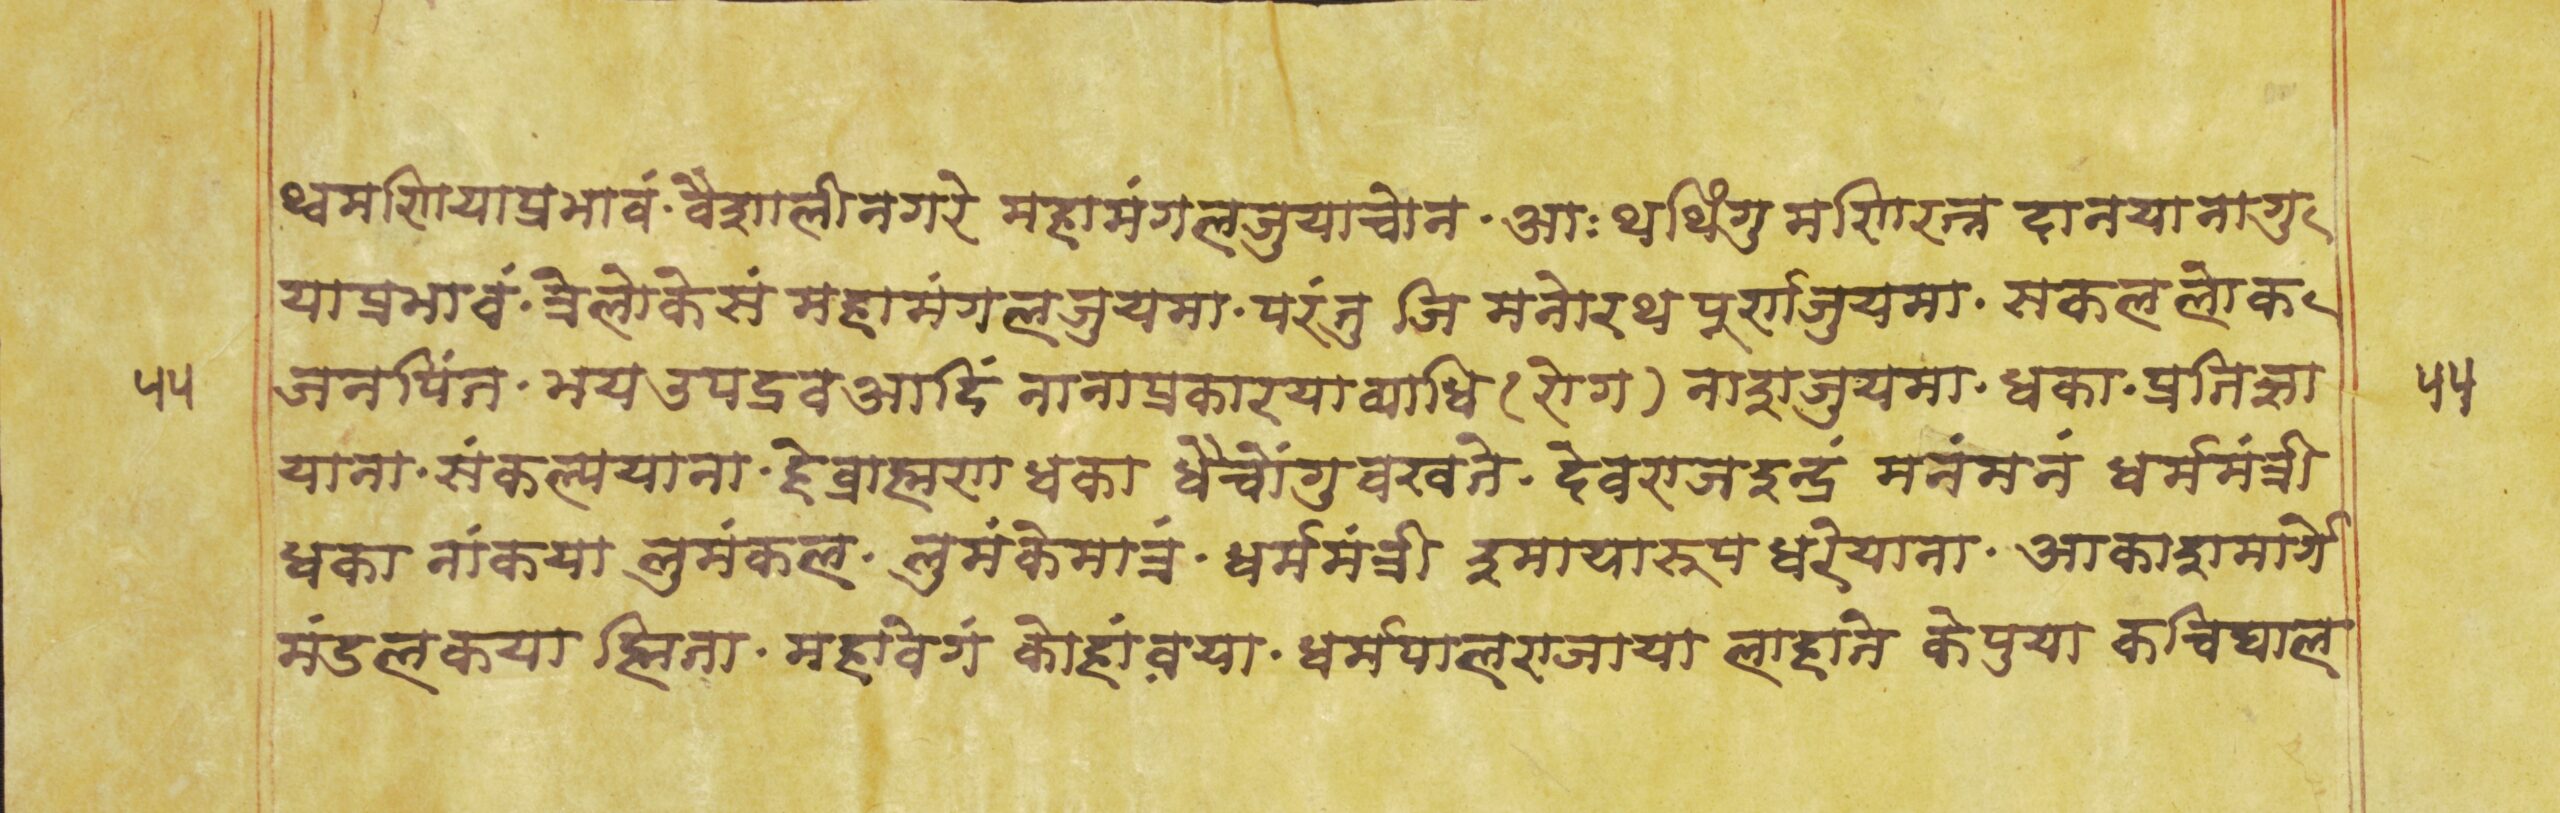 थ्वमणियाप्रभावं. वैशालीनगरे महामंगलजुयाचोन. आः थथिंगु मणिरत्न दानयानागु
याप्रभावं. त्रैलोकेसं महामंगलजुयमा. परंतु जि मनोरथ पूर्णजुयमा. सकललोक
५५ जनपिंत. भयउपद्रवआदिं नानाप्रकारयाव्याधि (रोग) नाशजुयमा. धका. प्रतिज्ञा ५५
याना. संकल्पयाना. हे ब्राह्मण धका धैचोंगु वखते. देवराजइन्द्रं मनंमनं धर्ममंत्री
धका नांकया लुमंकल. लुमंकेमात्रं. धर्ममंत्री इमायारूप धरेयाना. आकाशमार्गे
मंडलकया ह्निता. महावेगं कोहां व़या. धर्मपालराजाया लाहाते केपुया कचिघाल